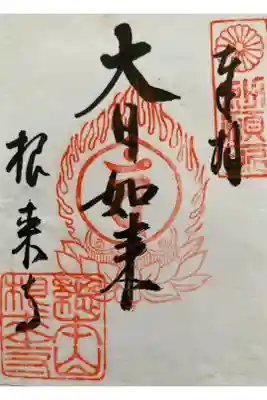 奉拝
大日如来
根来寺